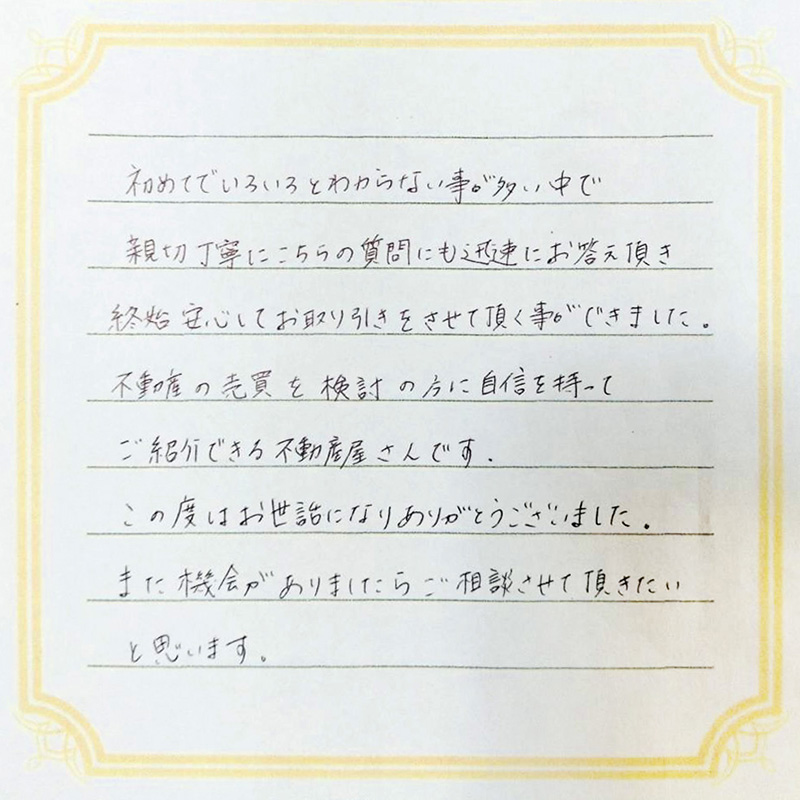 初めてでいろいろとわからない事が多い中で
親切丁寧にこちらの質問にも迅速にお答え頂き
終始安心してお取り引きをさせて頂く事ができました。
不動産の売買を検討の方に自信を持って
ご紹介できる不動産屋さんです.
この度はお世話になりありがとうございました.
また機会がありましたらご相談させて頂きたい
と思います。